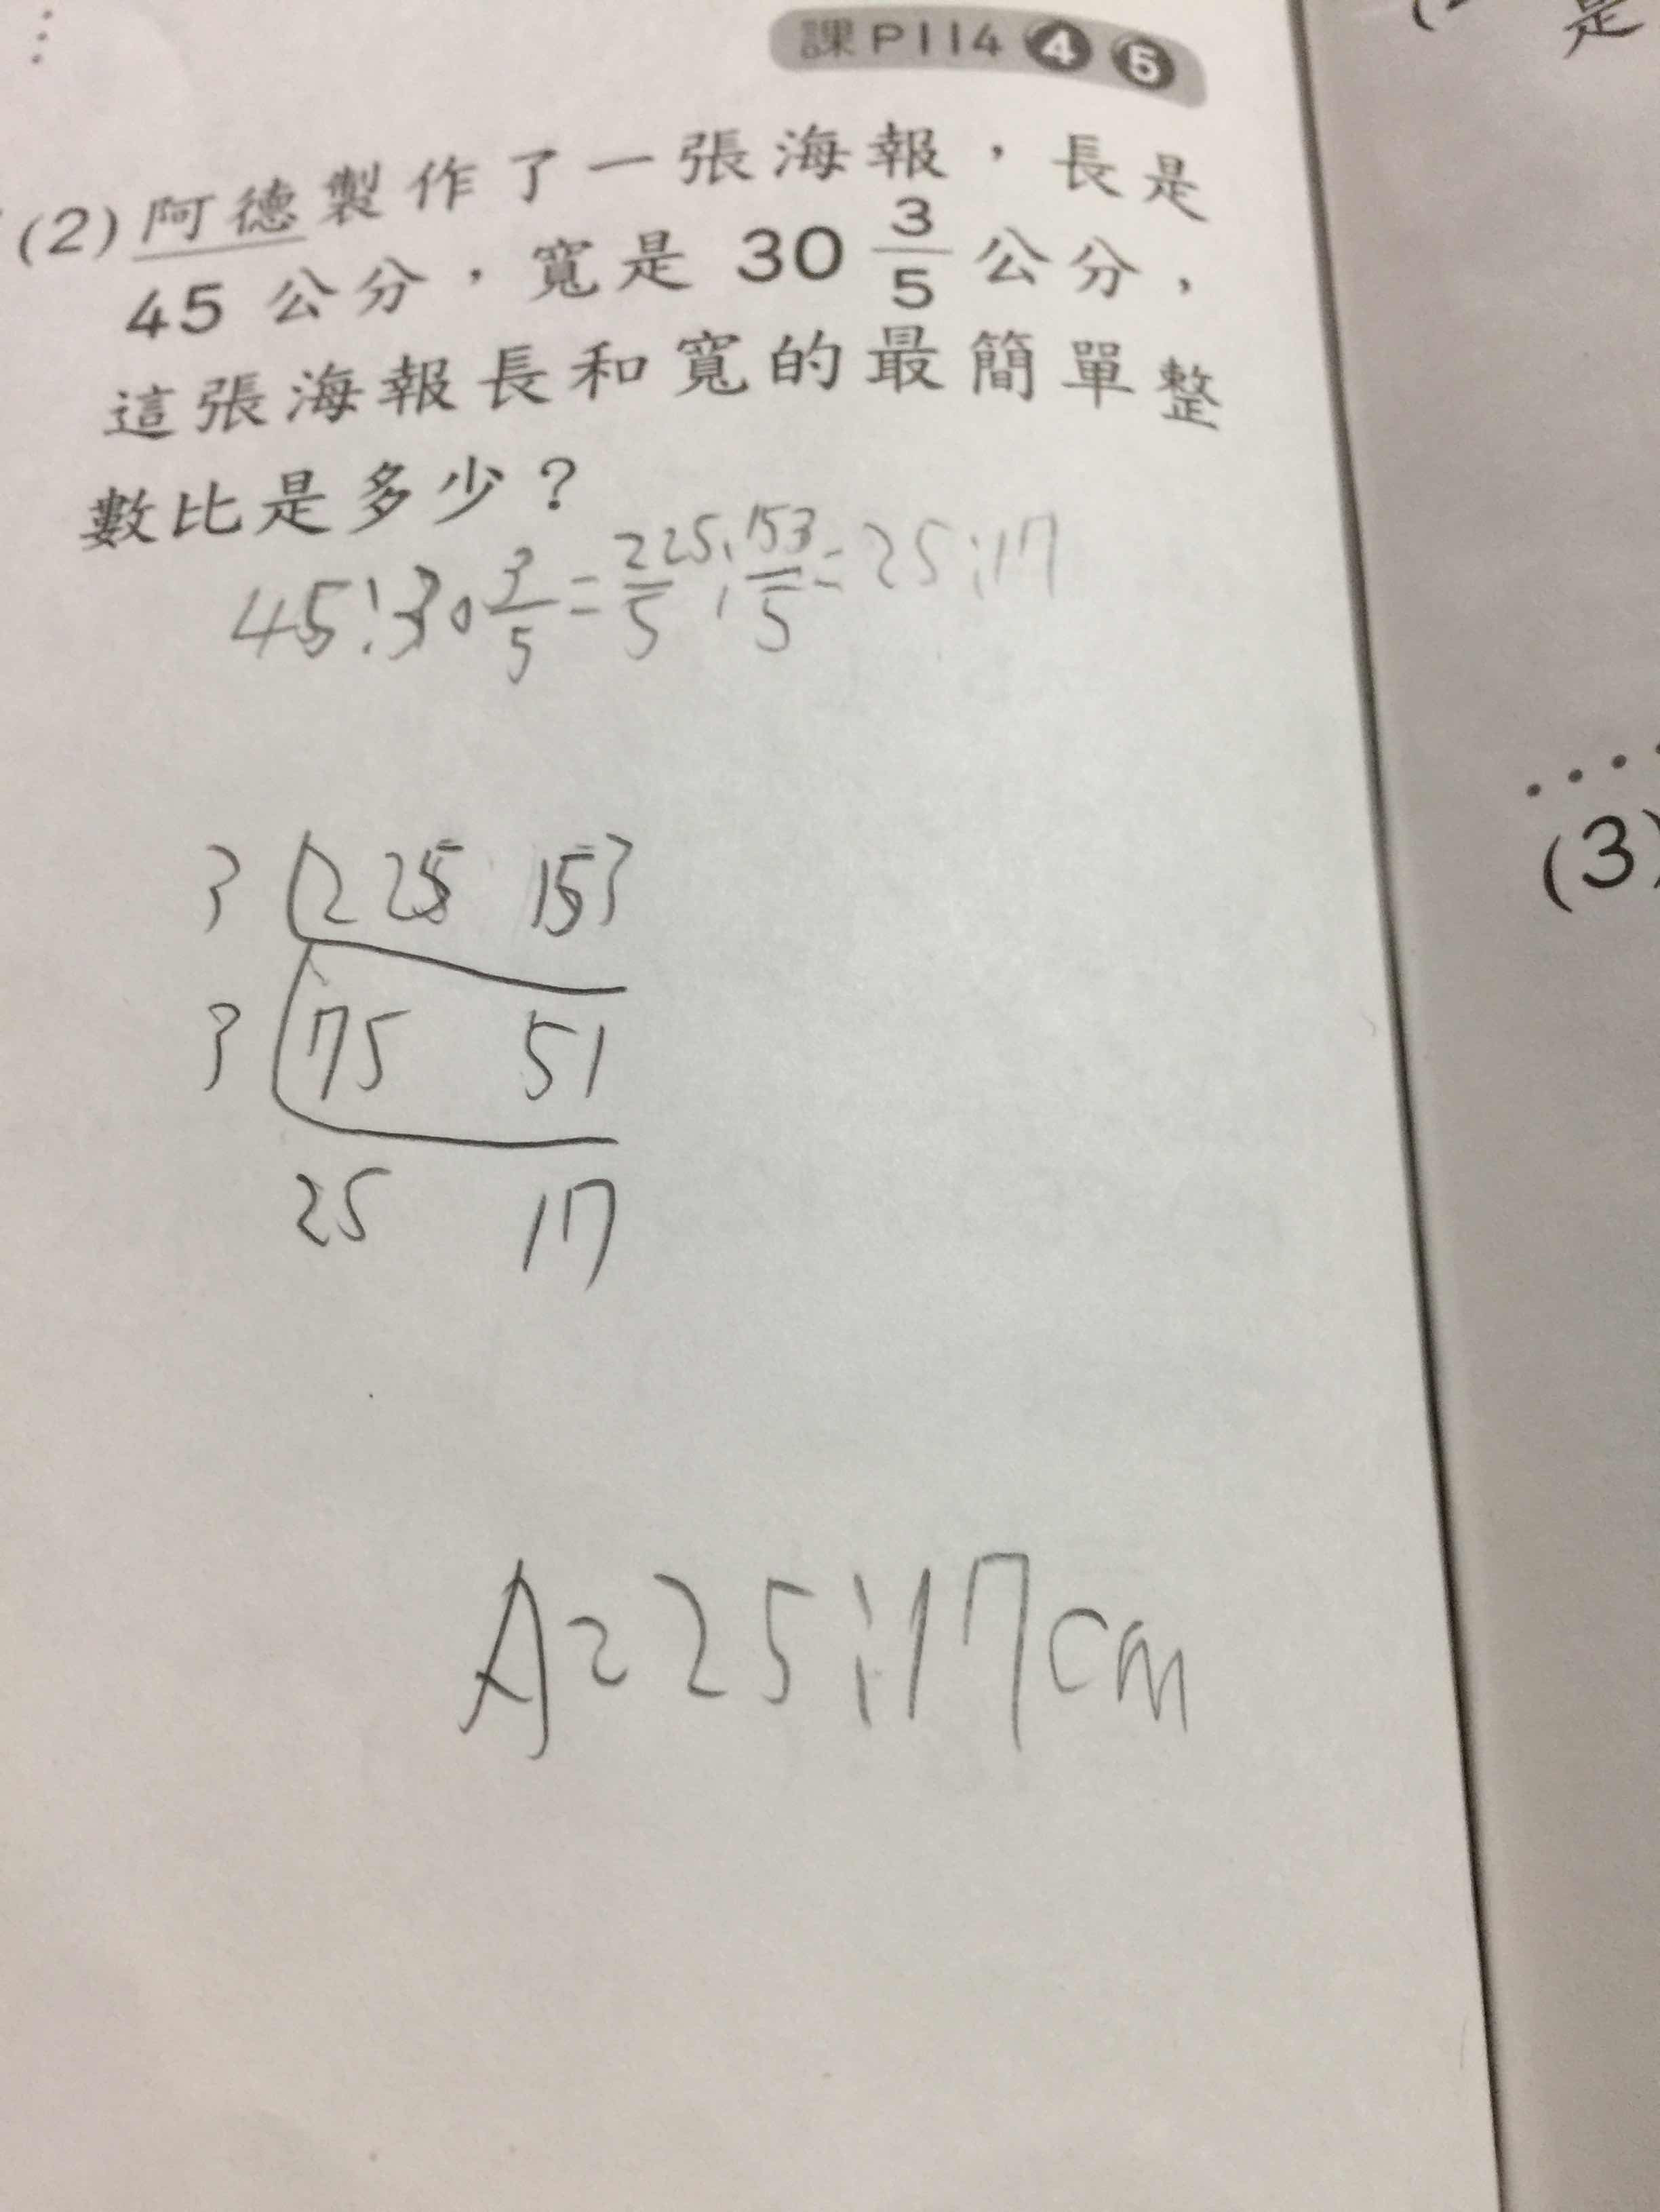 課P114 4 5
(2) 阿德製作了一張海報，長是
45 公分，寬是 30 3/5 公分，
這張海報長和寬的最簡單整
數比是多少？
45:30 3/5 = 225/5 : 153/5 = 25:17
3 225 153
3 75 51
25 17
A=25:17cm
是
(3)